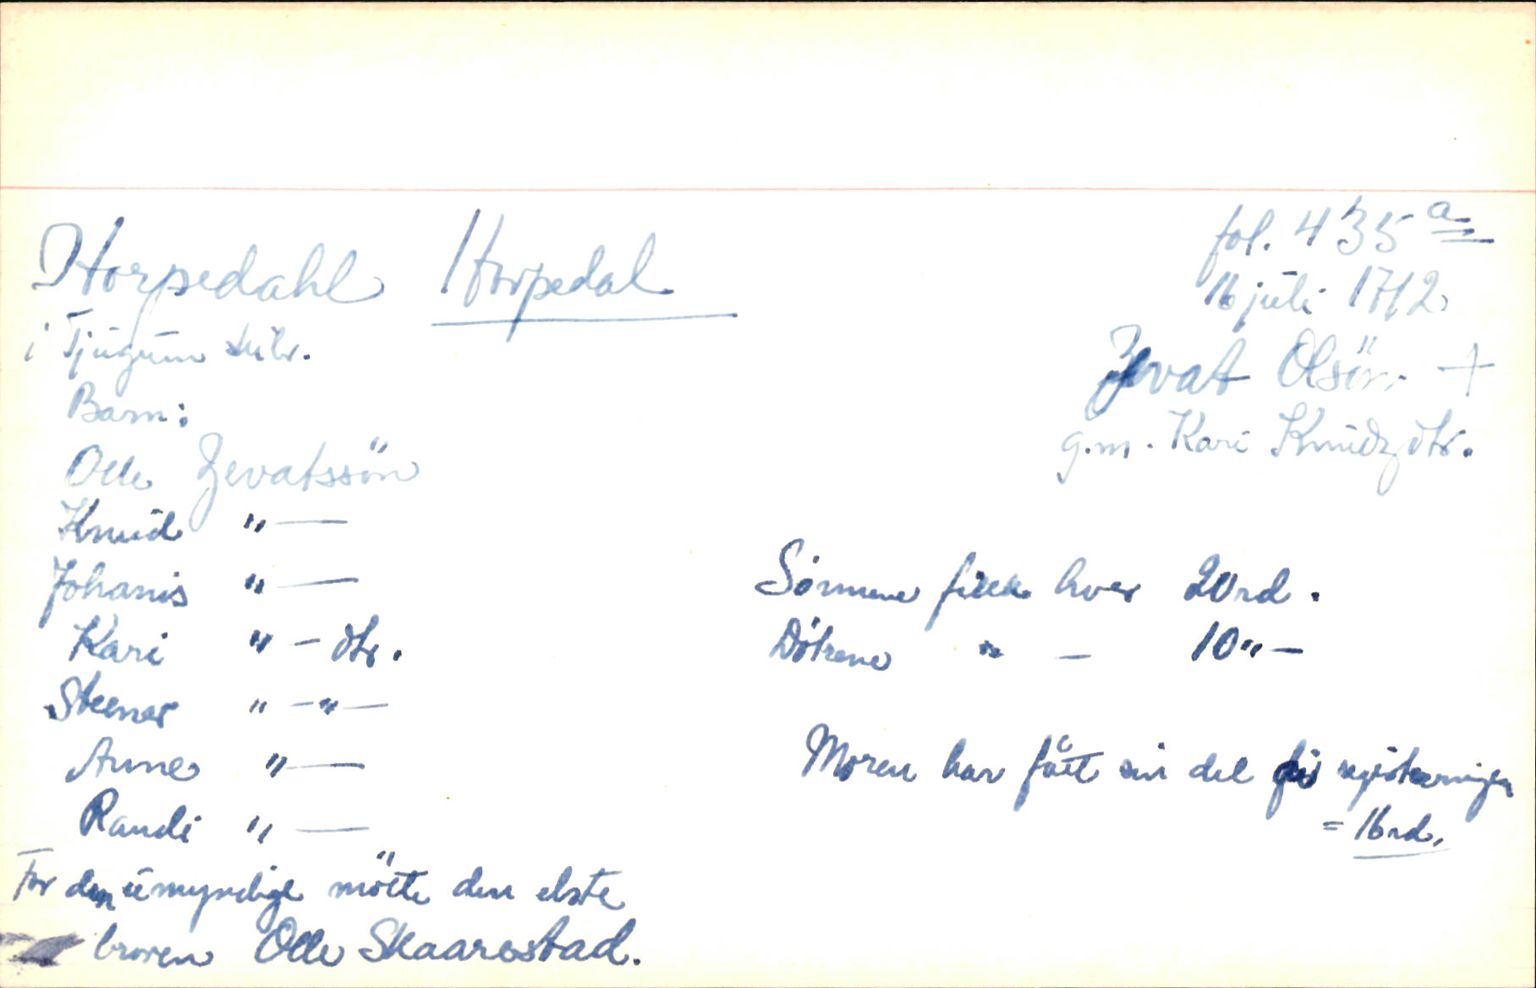 Horpedahl Horpedal
fol. 435 a
16 juli 1712
i Tjugum skibr.
Zevat Olsön +
g.m. Kari Knudzdtr.
Barn:
Olle Zevatssön
Knud " —
Johanis " —
Sønnene fikk hver 20 rd.
Kari " — dtr.
Døtrene " — 10 " —
Steener " — " —
Anne " —
Moren har fått sin del før registreringen
Randi " —
= 16 rd.
For den umyndige mötte den elste
broren Olle Skaarestad.